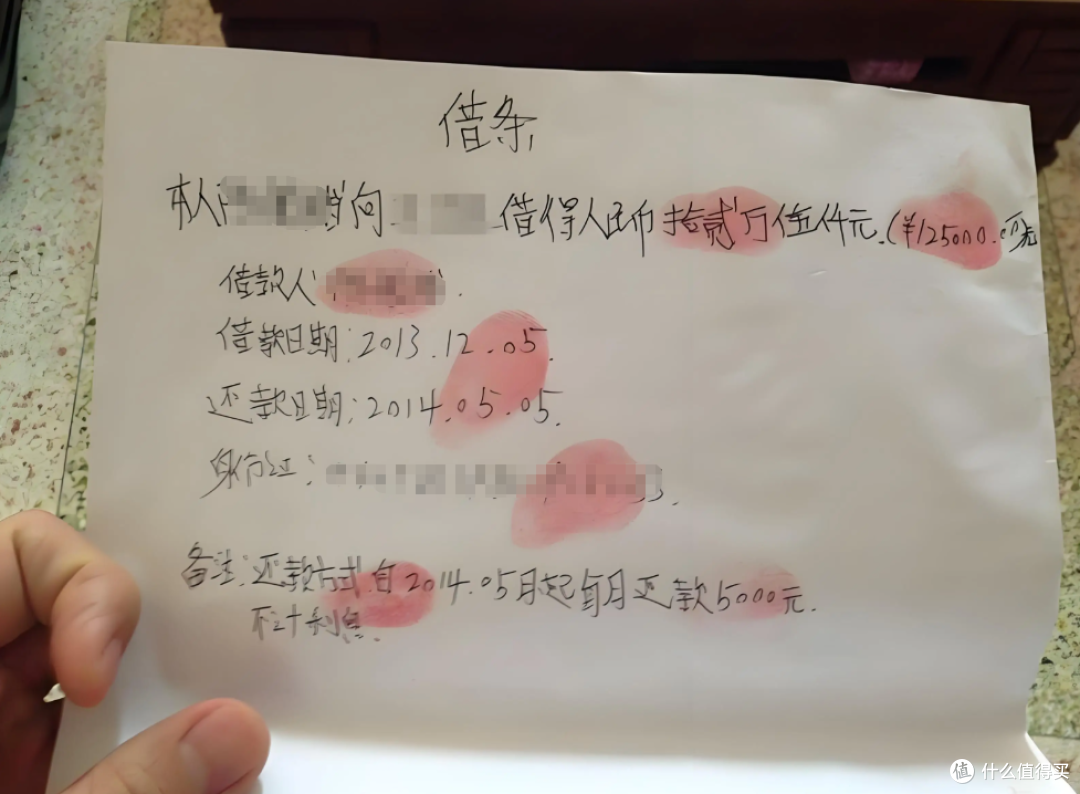 借条
本人 向 借得人民币拾贰万伍仟元.(¥125000.00元
借款人
借款日期:2013.12.05.
还款日期:2014.05.05.
身份证: 3.
备注:还款方式自2014.05月起每月还款5000元.
不计利息.
值 什么值得买